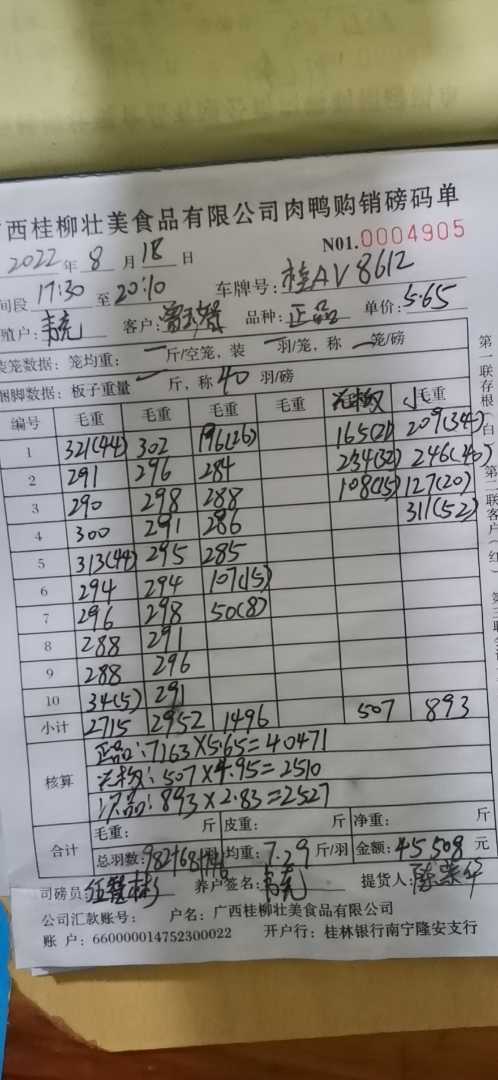 广西桂柳壮美食品有限公司肉鸭购销磅码单
2022年8月18日 N01.0004905
间段 17:30 至 20:10 车牌号: 桂AV8612
殖户: 韦亮 客户: 品种: 正品 单价: 5.65
装笼数据: 笼均重: 一 斤/空笼, 装 一 羽/笼, 称 一 笼/磅
捆脚数据: 板子重量 斤, 称 40 羽/磅
编号 毛重 毛重 毛重 毛重 毛重
1 321(44) 302 196(26) 165(21) 209(34)
2 291 296 284 234(32) 246(40)
3 290 298 288 108(15) 127(20)
4 300 291 286 311(52)
5 313(44) 295 285
6 294 294 107(15)
7 296 298 50(8)
8 288 291
9 288 296
10 34(5) 291
小计 2715 2952 1496 507 893
核算
正品: 7163×5.65=40471
507×4.95=2510
次品: 893×2.83=2527
合计 毛重: 斤 皮重: 斤 净重: 斤
总羽数: 982+68+146 羽 均重: 7.29 斤/羽 金额: 45508 元
司磅员: 养户签名: 韦亮 提货人: 陈荣华
公司汇款账号: 户名: 广西桂柳壮美食品有限公司
账 户: 660000014752300022 开户行: 桂林银行南宁隆安支行
第一联存根(白) 第二联客户(红) 第三联